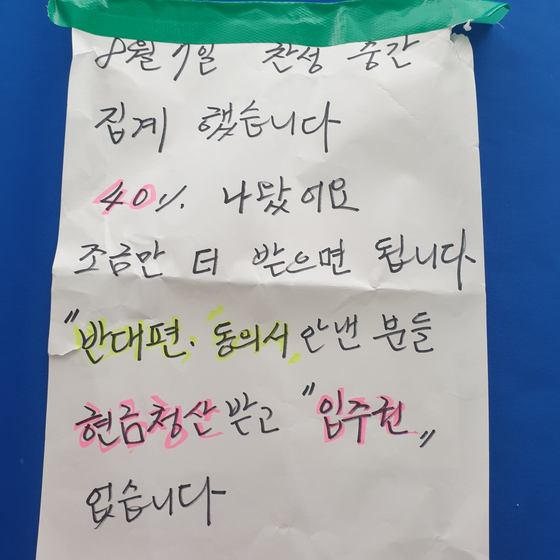 8월 7일 찬성 중간
집계 했습니다
40% 나왔어요
조금만 더 받으면 됩니다
"반대편, "동의서" 안낸 분들
현금청산 받고 "입주권"
없습니다